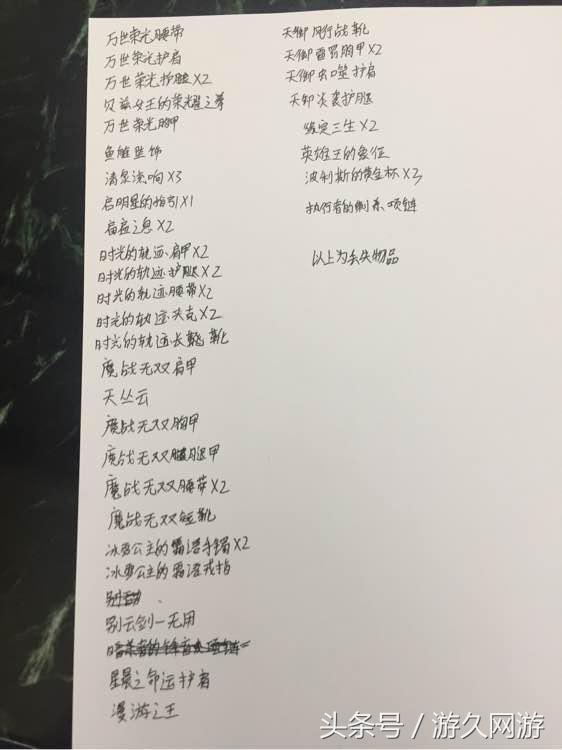 万世荣光腰带
万世荣光护肩
万世荣光护腿X2
贝兹女王的荣耀之尊
万世荣光胸甲
鱼雕坠饰
清泉流响X3
启明星的指引X1
瘟疫之息X2
时光的轨迹肩甲X2
时光的轨迹护腿X2
时光的轨迹腰带X2
时光的轨迹夹克X2
时光的轨迹长靴
魔战无双肩甲
天丛云
魔战无双胸甲
魔战无双腿甲
魔战无双腰带X2
魔战无双短靴
冰雪公主的霜语手镯X2
冰雪公主的霜语戒指
别云剑-无用
星晨之命运护肩
漫游之王
天御风行战靴
天御雷罚胸甲X2
天御虫噬护肩
天御炎袭护腿
缘定三生X2
英雄王的象征
波利斯的黄金杯X3
执行者的制裁项链
以上为丢失物品
头条号 / 游久网游